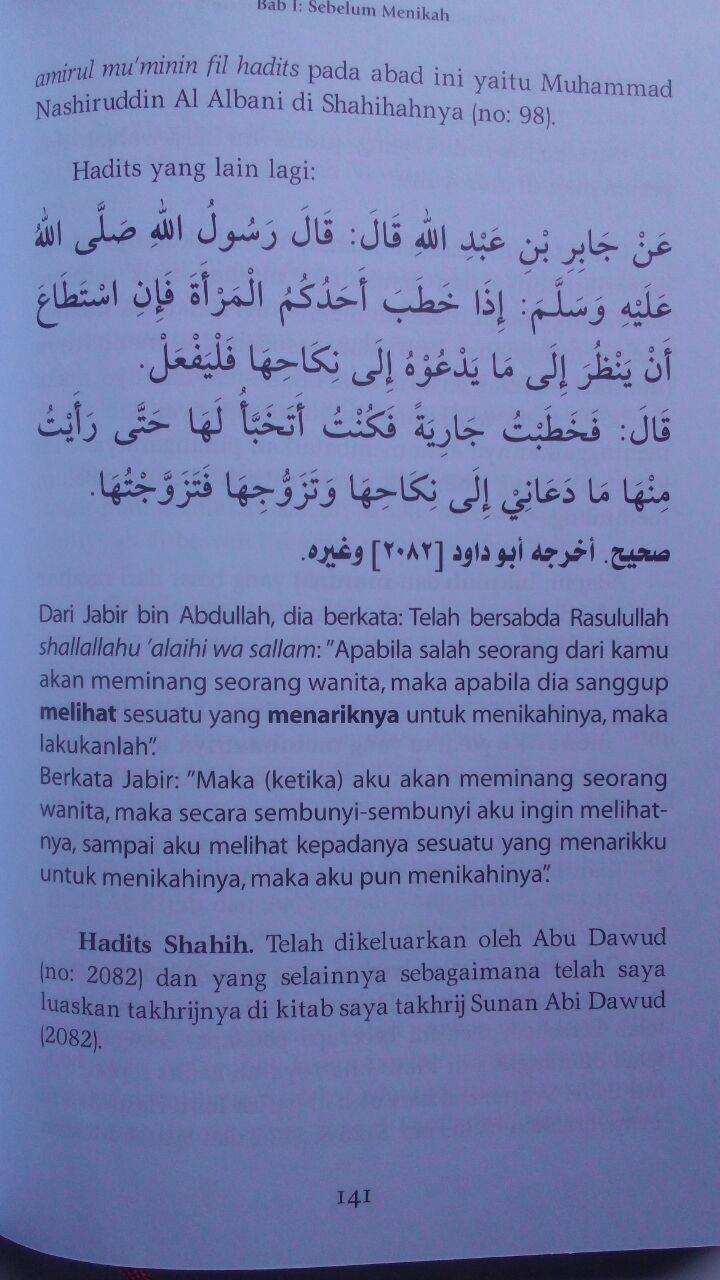 Bab I: Sebelum Menikah
amirul mu'minin fil hadits pada abad ini yaitu Muhammad
Nashiruddin Al Albani di Shahihahnya (no: 98).
Hadits yang lain lagi:
عَنْ جَابِرِ بْنِ عَبْدِ اللهِ قَالَ: قَالَ رَسُولُ اللهِ صَلَّى اللهُ
عَلَيْهِ وَسَلَّمَ: إِذَا خَطَبَ أَحَدُكُمُ الْمَرْأَةَ فَإِنِ اسْتَطَاعَ
أَنْ يَنْظُرَ إِلَى مَا يَدْعُوْهُ إِلَى نِكَاحِهَا فَلْيَفْعَلْ.
قَالَ: فَخَطَبْتُ جَارِيَةً فَكُنْتُ أَتَخَبَّأُ لَهَا حَتَّى رَأَيْتُ
مِنْهَا مَا دَعَانِيْ إِلَى نِكَاحِهَا وَتَزَوُّجِهَا فَتَزَوَّجْتُهَا.
صحيح. أخرجه أبو داود [٢٠٨٢] وغيره.
Dari Jabir bin Abdullah, dia berkata: Telah bersabda Rasulullah
shallallahu 'alaihi wa sallam: "Apabila salah seorang dari kamu
akan meminang seorang wanita, maka apabila dia sanggup
melihat sesuatu yang menariknya untuk menikahinya, maka
lakukanlah".
Berkata Jabir: "Maka (ketika) aku akan meminang seorang
wanita, maka secara sembunyi-sembunyi aku ingin melihat-
nya, sampai aku melihat kepadanya sesuatu yang menarikku
untuk menikahinya, maka aku pun menikahinya".
Hadits Shahih. Telah dikeluarkan oleh Abu Dawud
(no: 2082) dan yang selainnya sebagaimana telah saya
luaskan takhrijnya di kitab saya takhrij Sunan Abi Dawud
(2082).
141